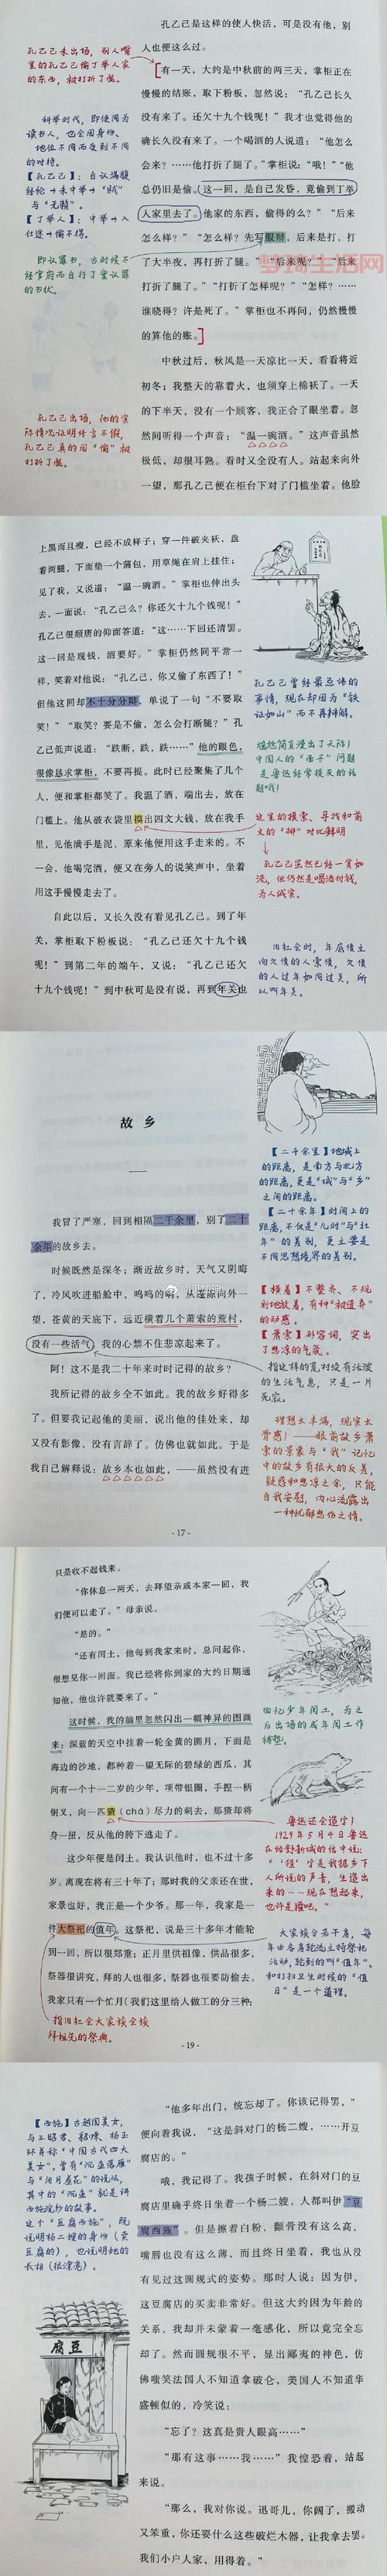 孔乙己是这样的使人快活，可是没有他，别
人也便这么过。
孔乙己未出场，别人嘴
里的孔乙己偷了举人家
的东西，被打折了腿。
有一天，大约是中秋前的两三天，掌柜正在
慢慢的结账，取下粉板，忽然说：“孔乙己长久
没有来了。还欠十九个钱呢！”我才也觉得他的
确长久没有来了。一个喝酒的人说道：“他怎么
会来？……他打折了腿了。”掌柜说：“哦！”“他
总仍旧是偷。这一回，是自己发昏，竟偷到丁举
人家里去了。他家的东西，偷得的么？”“后来
怎么样？”“怎么样？先写服辩，后来是打，打
了大半夜，再打折了腿。”“后来呢？”“后来
打折了腿了。”“打折了怎样呢？”“怎样？……
谁晓得？许是死了。”掌柜也不再问，仍然慢慢
的算他的账。
科举时代，即使同为
读书人，也会因身份、
地位不同而受到不同
的对待。
【孔乙己】：自认满腹
经纶→未中举→“贼”
与“无赖”。
【丁举人】：中举→入
仕途→偷不得。
即认罪书，古时候不
经官府而自行了案认罪
的书状。
梦琦生活网
中秋过后，秋风是一天凉比一天，看看将近
初冬；我整天的靠着火，也须穿上棉袄了。一天
的下半天，没有一个顾客，我正合了眼坐着。忽
然间听得一个声音：“温一碗酒。”这声音虽然
极低，却很耳熟。看时又全没有人。站起来向外
一望，那孔乙己便在柜台下对了门槛坐着。他脸
孔乙己出场，他的实
际情况证明传言不假，
孔乙己真的因“偷”被
打折了腿。
上黑而且瘦，已经不成样子；穿一件破夹袄，盘
着两腿，下面垫一个蒲包，用草绳在肩上挂住；
见了我，又说道：“温一碗酒。”掌柜也伸出头
去，一面说：“孔乙己么？你还欠十九个钱呢！”
孔乙己很颓唐的仰面答道：“这……下回还清罢。
这一回是现钱，酒要好。”掌柜仍然同平常一
样，笑着对他说：“孔乙己，你又偷了东西了！”
但他这回却不十分分辩，单说了一句“不要取
笑！”“取笑？要是不偷，怎么会打断腿？”孔
乙己低声说道：“跌断，跌，跌……”他的眼色，
很像恳求掌柜，不要再提。此时已经聚集了几个
人，便和掌柜都笑了。我温了酒，端出去，放在
门槛上。他从破衣袋里摸出四文大钱，放在我手
里，见他满手是泥，原来他便用这手走来的。不
一会，他喝完酒，便又在旁人的说笑声中，坐着
用这手慢慢走去了。
自此以后，又长久没有看见孔乙己。到了年
关，掌柜取下粉板说：“孔乙己还欠十九个钱
呢！”到第二年的端午，又说：“孔乙己还欠
十九个钱呢！”到中秋可是没有说，再到年关也
孔乙己曾经最忌讳的
事情，现在却因为“铁
证如山”而不再辩解。
尴尬简直漫出了天际！
中国人的“面子”问题
是鲁迅经常提及的话
题哦！
这里的摸索、寻找和前
文的“排”对比鲜明
孔乙己虽然已经一贫如
洗，但仍然是喝酒付钱，
为人诚实。
旧社会时，年底债主
向欠债的人索债，欠债
的人过年如同过关，所
以叫年关。
故乡
我冒了严寒，回到相隔二千余里，别了二十
余年的故乡去。
时候既然是深冬；渐近故乡时，天气又阴晦
了，冷风吹进船舱中，呜呜的响，从篷隙向外一
望，苍黄的天底下，远近横着几个萧索的荒村，
没有一些活气。我的心禁不住悲凉起来了。
阿！这不是我二十年来时时记得的故乡？
我所记得的故乡全不如此。我的故乡好得多
了。但要我记起他的美丽，说出他的佳处来，却
又没有影像，没有言辞了。仿佛也就如此。于是
我自己解释说：故乡本也如此，——虽然没有进
- 17 -
【二千余里】地域上
的距离，是南方与北方
的距离，更是“城”与“乡”
之间的距离。
【二十余年】时间上的
距离，不仅是“儿时”与“壮
年”的差别，更主要是
不同思想境界的差别。
【横着】不整齐、不规
则地放着，有种“被遗弃”
的动感。
【萧索】形容词，突出
了悲凉的气氛。
指这样的荒村没有活泼
的生活气息，只是一片
死寂。
理想太丰满，现实太
骨感！——眼前故乡萧
索的景象与“我”记忆
中的故乡有很大的反差，
疑惑和悲凉之余，只能
自我安慰，内心流露出
一种忧郁悲伤之情。
只是收不起钱来。
“你休息一两天，去拜望亲戚本家一回，我
们便可以走了。”母亲说。
“是的。”
“还有闰土，他每到我家来时，总问起你，
很想见你一回面。我已经将你到家的大约日期通
知他，他也许就要来了。”
这时候，我的脑里忽然闪出一幅神异的图画
来：深蓝的天空中挂着一轮金黄的圆月，下面是
海边的沙地，都种着一望无际的碧绿的西瓜，其
间有一个十一二岁的少年，项带银圈，手捏一柄
钢叉，向一匹猹（chá）尽力的刺去，那猹却将
身一扭，反从他的胯下逃走了。
这少年便是闰土。我认识他时，也不过十多
岁，离现在将有三十年了；那时我的父亲还在世，
家景也好，我正是一个少爷。那一年，我家是一
件大祭祀的值年。这祭祀，说是三十多年才能轮
到一回，所以很郑重；正月里供祖像，供品很多，
祭器很讲究，拜的人也很多，祭器也很要防偷去。
我家只有一个忙月（我们这里给人做工的分三种：
指旧社会大家族全族
拜祖先的祭典。
- 19 -
回忆少年闰土，为之
后出场的成年闰土作
铺垫。
鲁迅还会造字！
1929年5月4日鲁迅
在给舒新城的信中说：
“‘猹’字是我据乡下
人所说的声音，生造出
来的……现在想起来，
也许是獾吧。”
大家族分若干房，每
年由各房轮流主持祭祀
活动，轮到的叫“值年”。
和打扫卫生时候的“值
日”是一个道理。
“他多年出门，统忘却了。你该记得罢，”
便向着我说，“这是斜对门的杨二嫂，……开豆
腐店的。”
哦，我记得了。我孩子时候，在斜对门的豆
腐店里确乎终日坐着一个杨二嫂，人都叫伊“豆
腐西施”。但是擦着白粉，颧骨没有这么高，
嘴唇也没有这么薄，而且终日坐着，我也从没
有见过这圆规式的姿势。那时人说：因为伊，
这豆腐店的买卖非常好。但这大约因为年龄的
关系，我却并未蒙着一毫感化，所以竟完全忘
却了。然而圆规很不平，显出鄙夷的神色，仿
佛嗤笑法国人不知道拿破仑，美国人不知道华
盛顿似的，冷笑说：
“忘了？这真是贵人眼高……”
“那有这事……我……”我惶恐着，站起
来说。
“那么，我对你说。迅哥儿，你阔了，搬动
又笨重，你还要什么这些破烂木器，让我拿去罢。
我们小户人家，用得着。”
【西施】古越国美女，
与王昭君、貂蝉、杨玉
环并称“中国古代四大
美女”。曾有“沉鱼落雁”
与“闭月羞花”的说法，
其中的“沉鱼”就是讲
西施浣纱的故事。
这个“豆腐西施”，既
说明杨二嫂的身份（卖
豆腐的），也说明她的
长相（很漂亮）。
腐豆